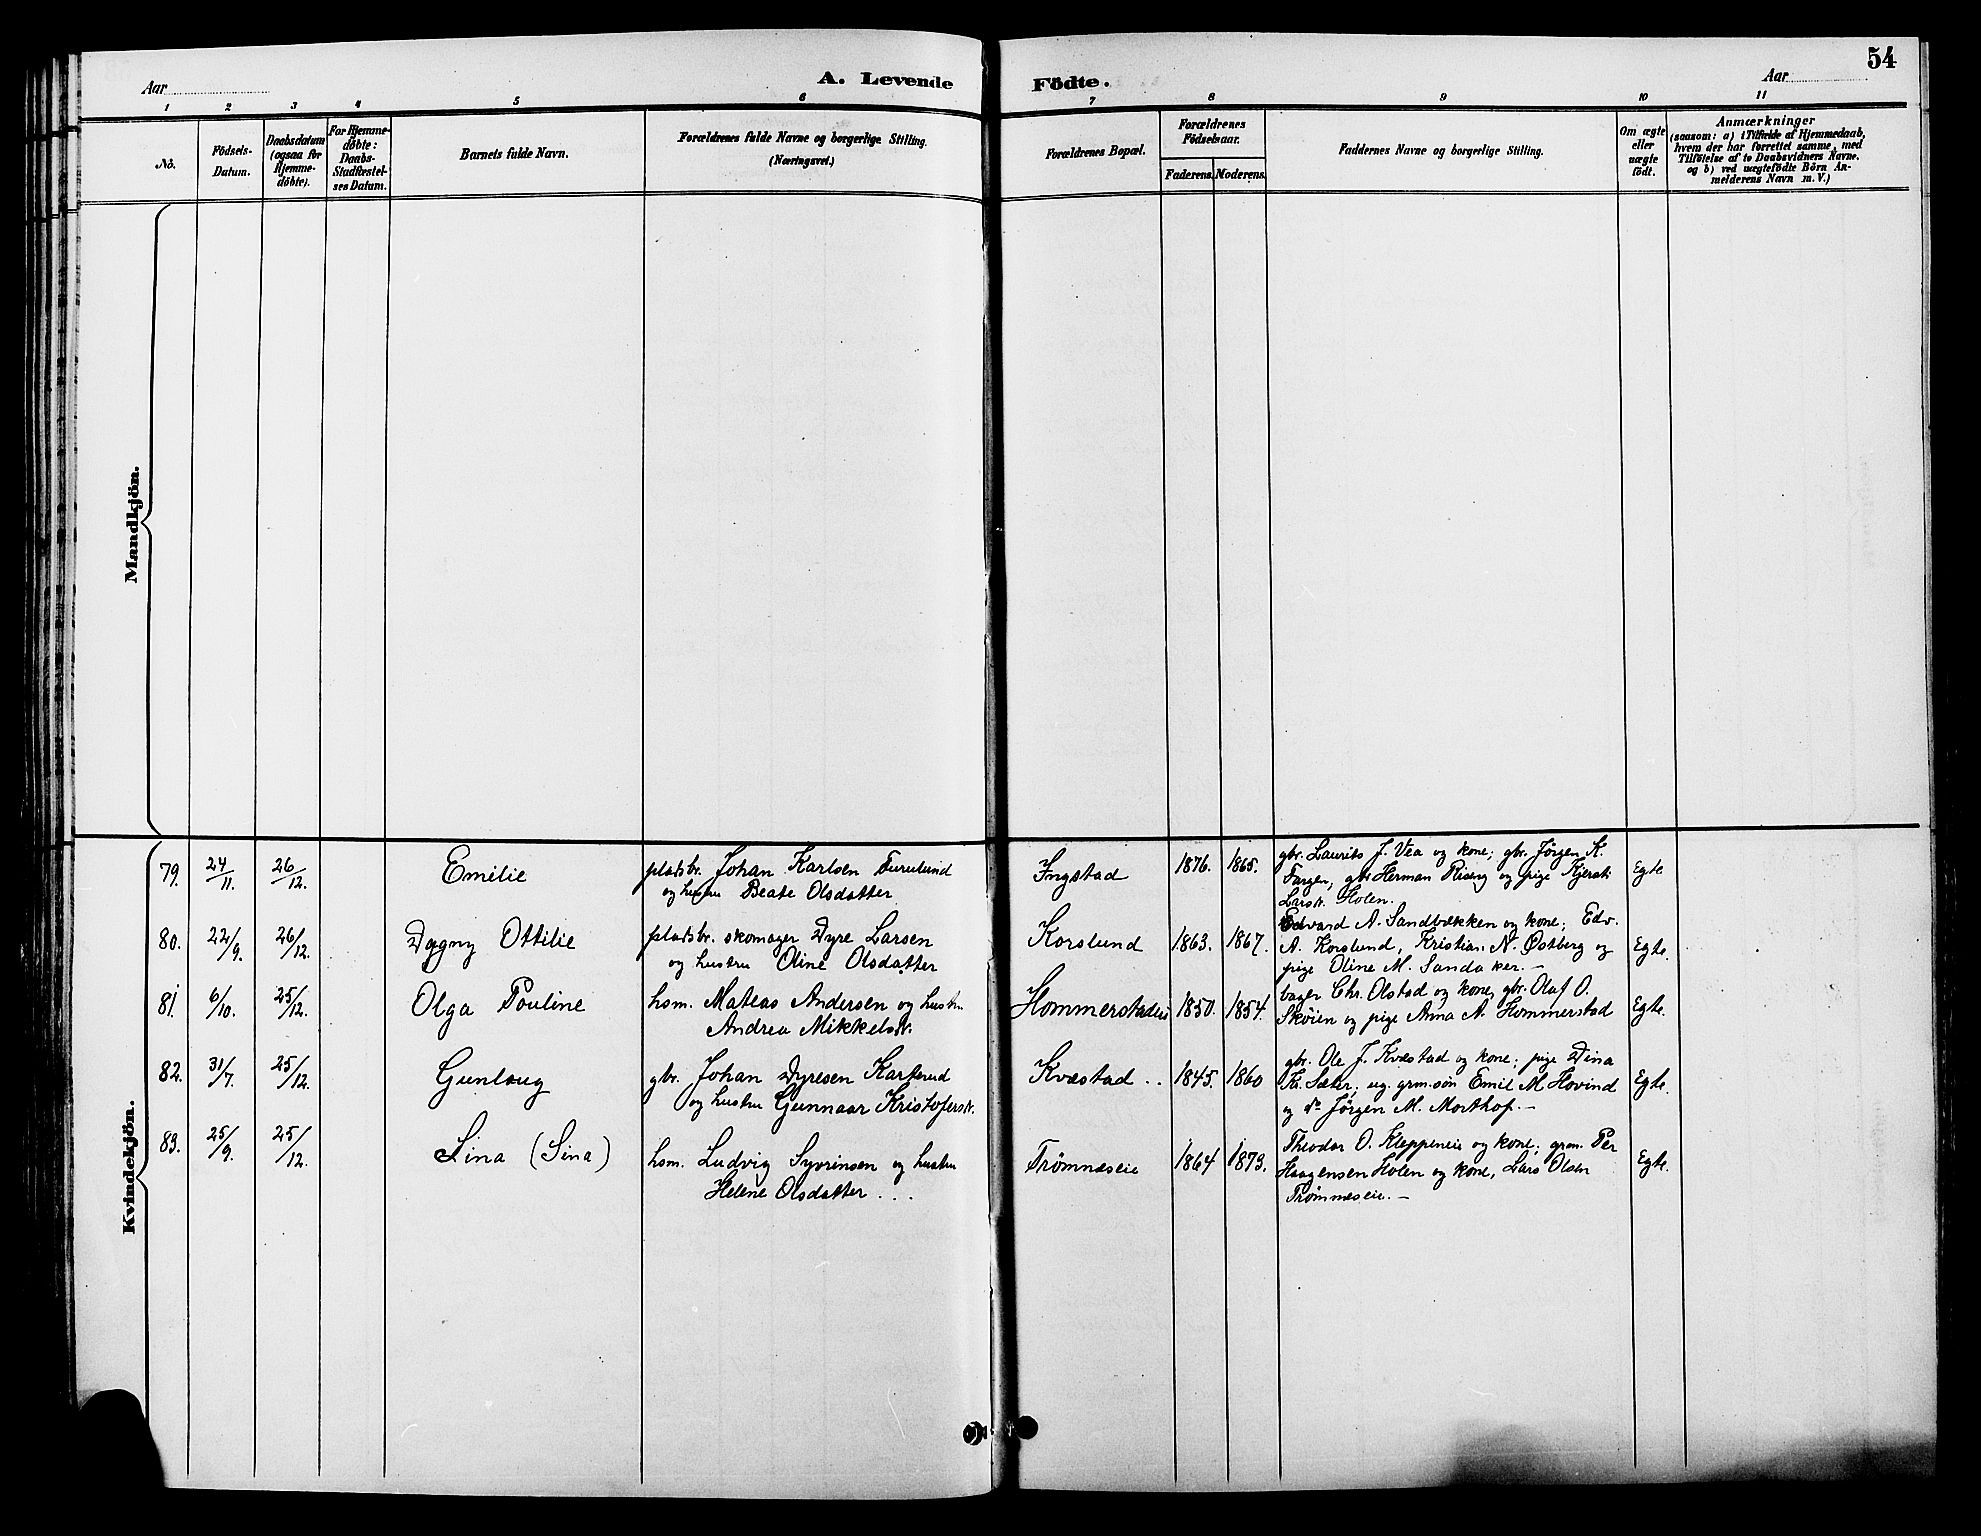 54
Aar
A. Levende
Födte.
Aar
1 2 3 4 5 6 7 8 9 10 11
No.
Födsels-
Datum.
Daabsdatum
(ogsaa for
Hjemme-
döbte).
For Hjemme-
döbte:
Daabs-
Stadfæstel-
ses Datum.
Barnets fulde Navn.
Forældrenes fulde Navne og borgerlige Stilling.
(Næringsvei.)
Forældrenes Bopæl.
Forældrenes
Födselsaar.
Faderens. Moderens.
Faddernes Navne og borgerlige Stilling.
Om ægte
eller
uægte
födt.
Anmærkninger
(saasom: a) i Tilfælde af Hjemmedaab,
hvem der har forrettet samme, med
Tilföielse af to Daabsvidners Navne.
og b) ved uægtefödte Börn An-
melderens Navn m. V.)
Mandkjön.
Kvindekjön.
79. 24/11. 26/12. Emilie
pladsbr. Johan Karlsen Furulund
og hustru Beate Olsdatter
Ingstad 1876. 1865.
gbr. Laurits J. Vea og kone; gbr. Jörgen K.
Fargen, gbr Herman Riseng og pige Kjersti
Larsdr. Holen.
Egte
80. 22/9. 26/12. Dagny Ottilie
pladsbr. skomager Dyre Larsen
og hustru Oline Olsdatter
Korslund 1863. 1867.
Edvard A. Sandbækken og kone; Edv.
A. Korslund, Kristian N. Østberg og
pige Oline M. Sandaker. –
Egte.
81. 6/10. 25/12. Olga Pouline
hsm. Mateas Andersen og hustru
Andrea Mikkelsdr.
Hommerstadeie 1850. 1854.
bager Chr. Olstad og kone, gbr. Olaf O.
Skøien og pige Anna A. Hommerstad
Egte.
82. 31/7. 25/12. Gunlaug
gbr. Johan Dyresen Karterud
og hustru Gunnaar Kristofersdr.
Kvæstad .. 1845. 1860
gbr. Ole J. Kvæstad og kone; pige Dina
K. Sæter; ug. grm.søn Emil M Hovind
og do Jörgen M. Morthof. –
Egte.
83. 25/9. 25/12. Lina (Sina)
hsm. Ludvig Syvrinsen og hustru
Helene Olsdatter ...
Trömnæseie 1864 1873.
Theodor O. Kleppeneie og kone; grm. Per
Haagensen Holen og kone, Lars Olsen
Trömnæseie. –
Egte.